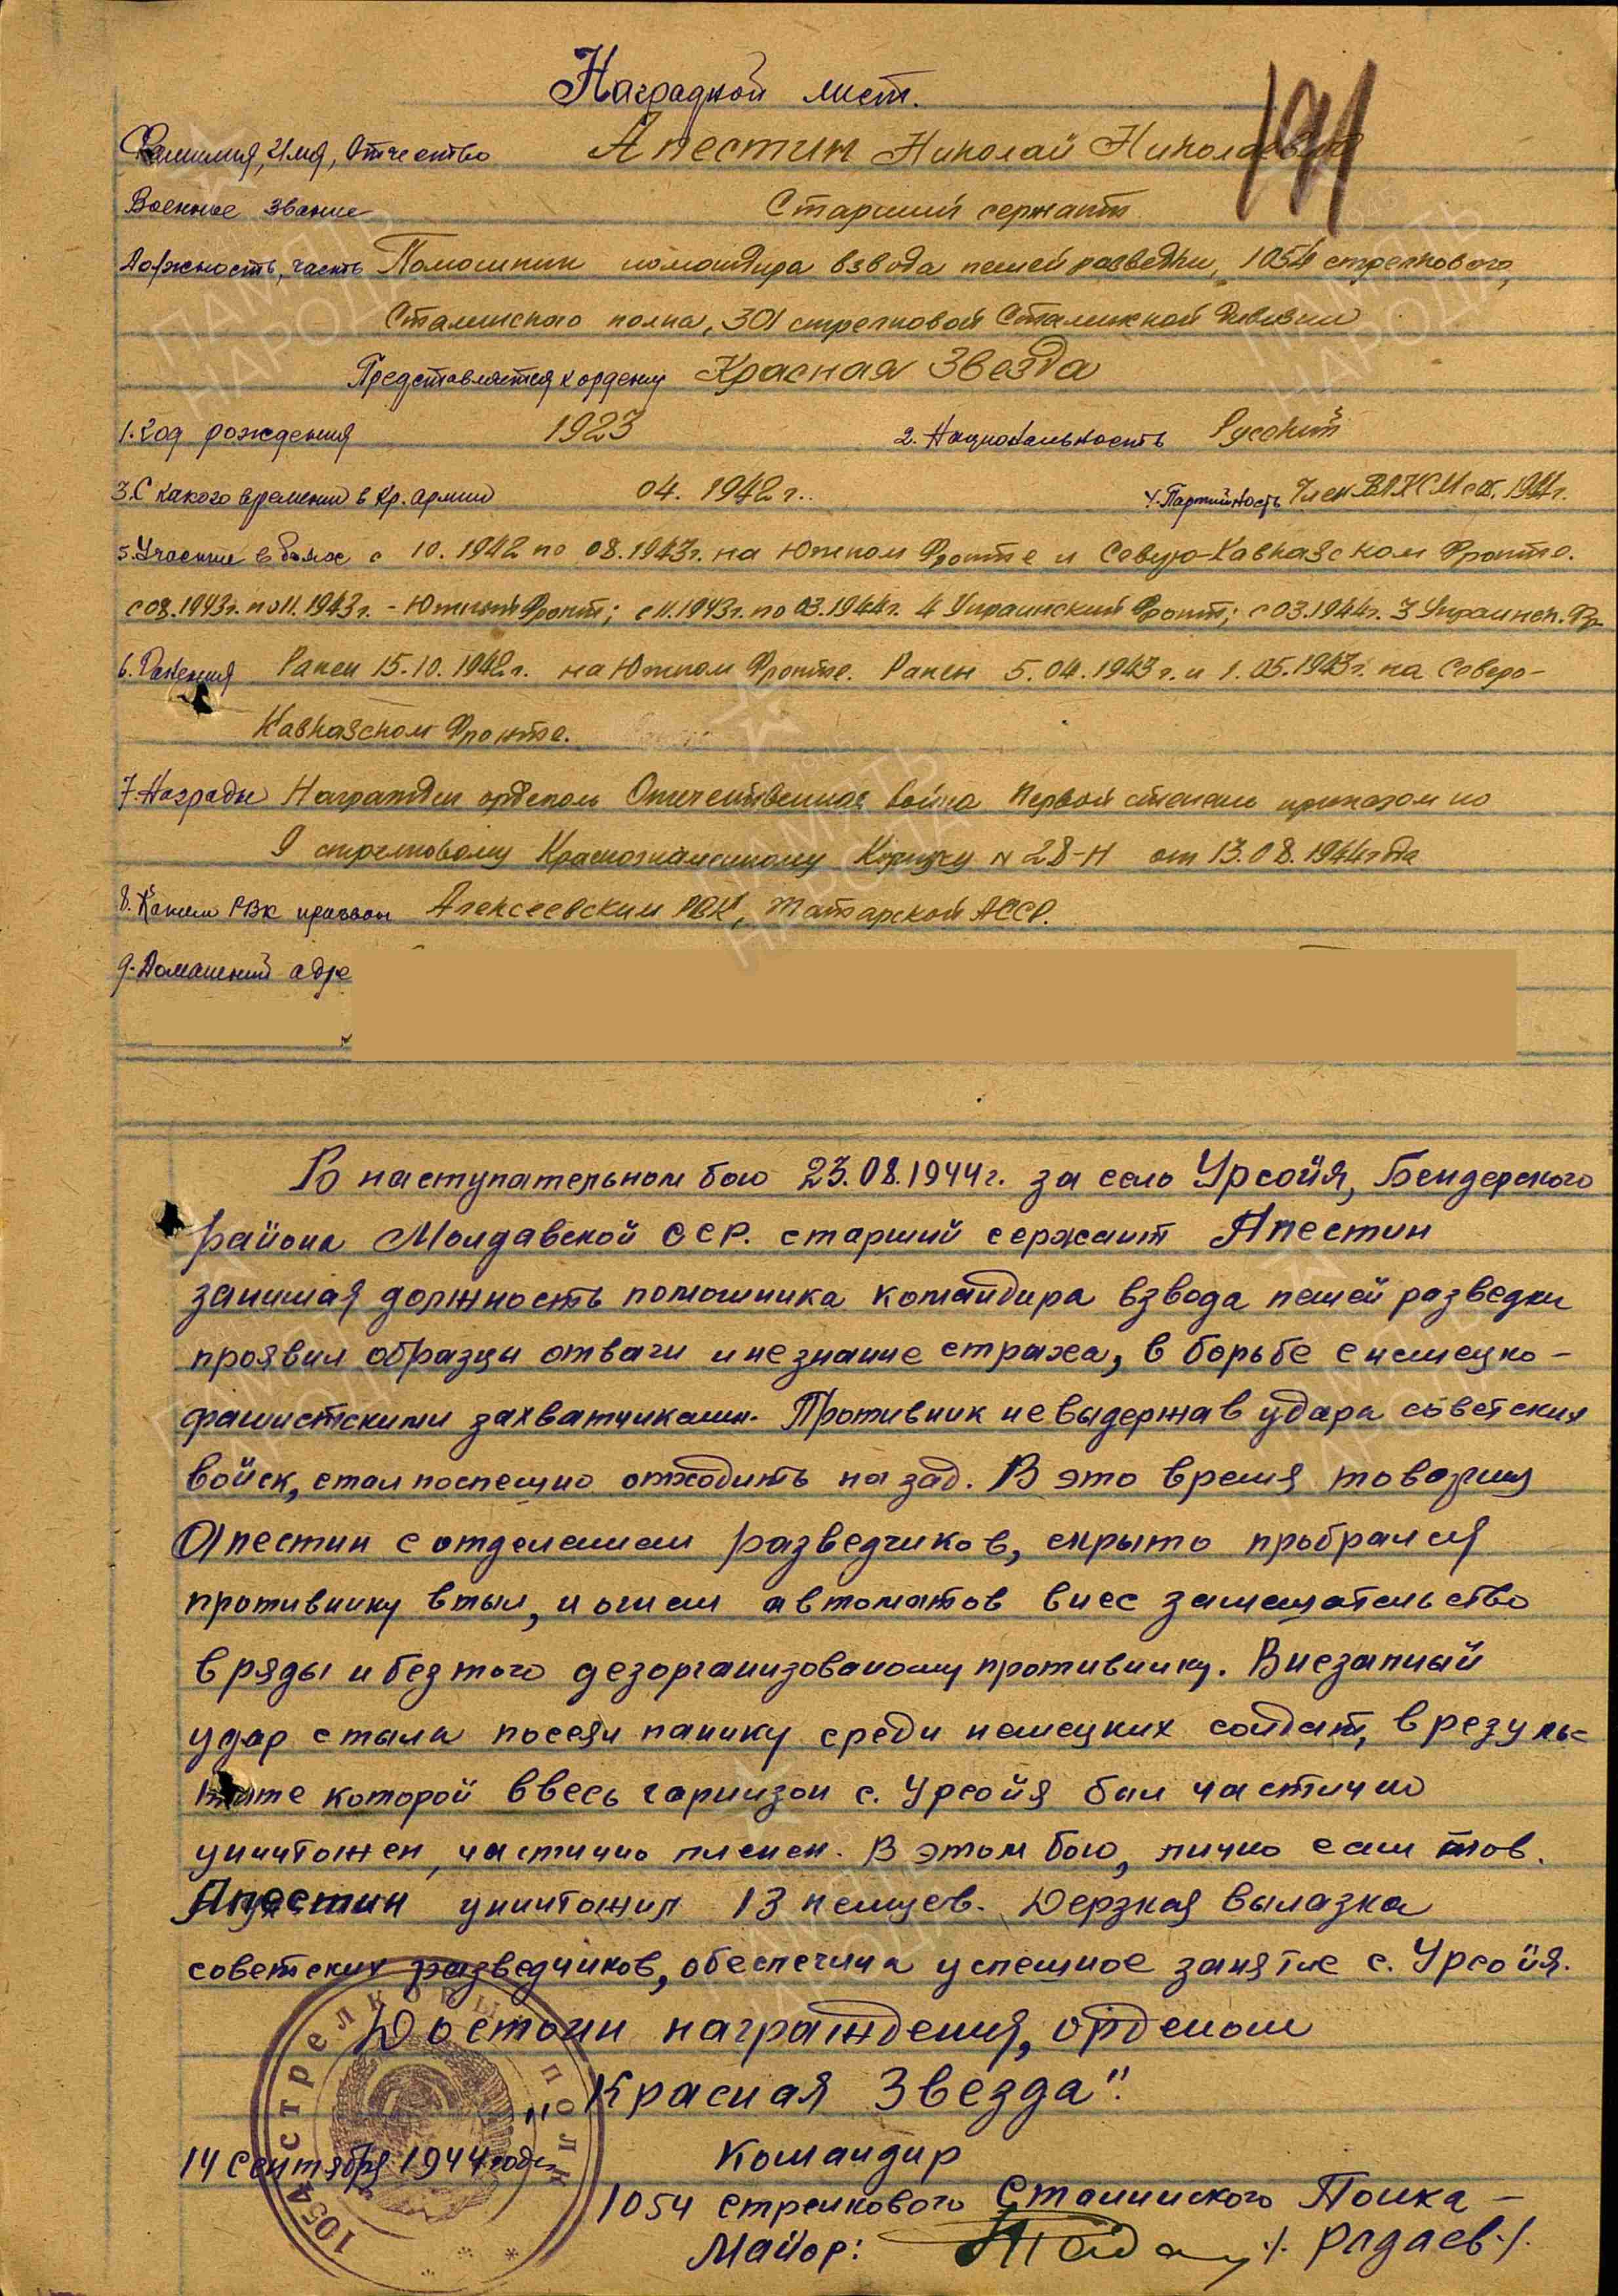 Наградной лист.
191
Фамилия, Имя, Отчество Апестин Николай Николаевич
Военное звание Старший сержант
Должность, часть Помошник командира взвода пешей разведки, 1054 стрелкового,
Сталинского полка, 301 стрелковой Сталинской Дивизии
Представляется к ордену Красная Звезда
1. Год рождения 1923 2. Национальность Русский
3. С какого времени в Кр. армии 04. 1942 г. 4. Партийность Член ВЛКСМ с 1941г.
5. Участие в боях с 10.1942 по 08.1943г. на Южном Фронте и Северо-Кавказском Фронте.
с 08.1943г. по 11.1943г. - Южный Фронт; с 11.1943г. по 03.1944г. 4 Украинский Фронт; с 03.1944г. 3 Украинск. Фр-
6. Ранения Ранен 15.10.1942г. на Южном Фронте. Ранен 5.04.1943г. и 1.05.1943г. на Северо-
Кавказском Фронте.
7. Награды Награжден орденом Отечественная война первой степени приказом по
9 стрелковому Краснознаменному Корпусу N 28-Н от 13.08.1944 года
8. Каким РВК призван Алексеевским РВК, Татарской АССР.
9. Домашний адре
В наступательном бою 23.08.1944г. за село Урсойя, Бендерского
района Молдавской ССР. старший сержант Апестин
занимая должность помошника командира взвода пешей разведки
проявил образцы отваги и незнание страха, в борьбе с немецко-
фашистскими захватчиками. Противник не выдержав удара советских
войск, стал поспешно отходить на зад. В это время товарищ
Апестин с отделением разведчиков, скрыто пробрался
противнику в тыл, и огнем автоматов внес замешательство
в ряды и без того дезорганизованому противнику. Внезапный
удар с тыла посеял панику среди немецких солдат, в резуль-
тате которой ввесь гарнизон с. Урсойя был частично
уничтожен, частично пленен. В этом бою, лично сам тов.
Апестин уничтожил 13 немцев. Дерзкая вылазка
советских разведчиков, обеспечила успешное занятие с. Урсойя.
Достоин награждения, орденом
"Красная Звезда".
14 Сентября 1944 года
Командир
1054 стрелкового Сталинского Полка -
Майор: /. Радаев ./.
1054 стрелковый полк
ПАМЯТЬ НАРОДА